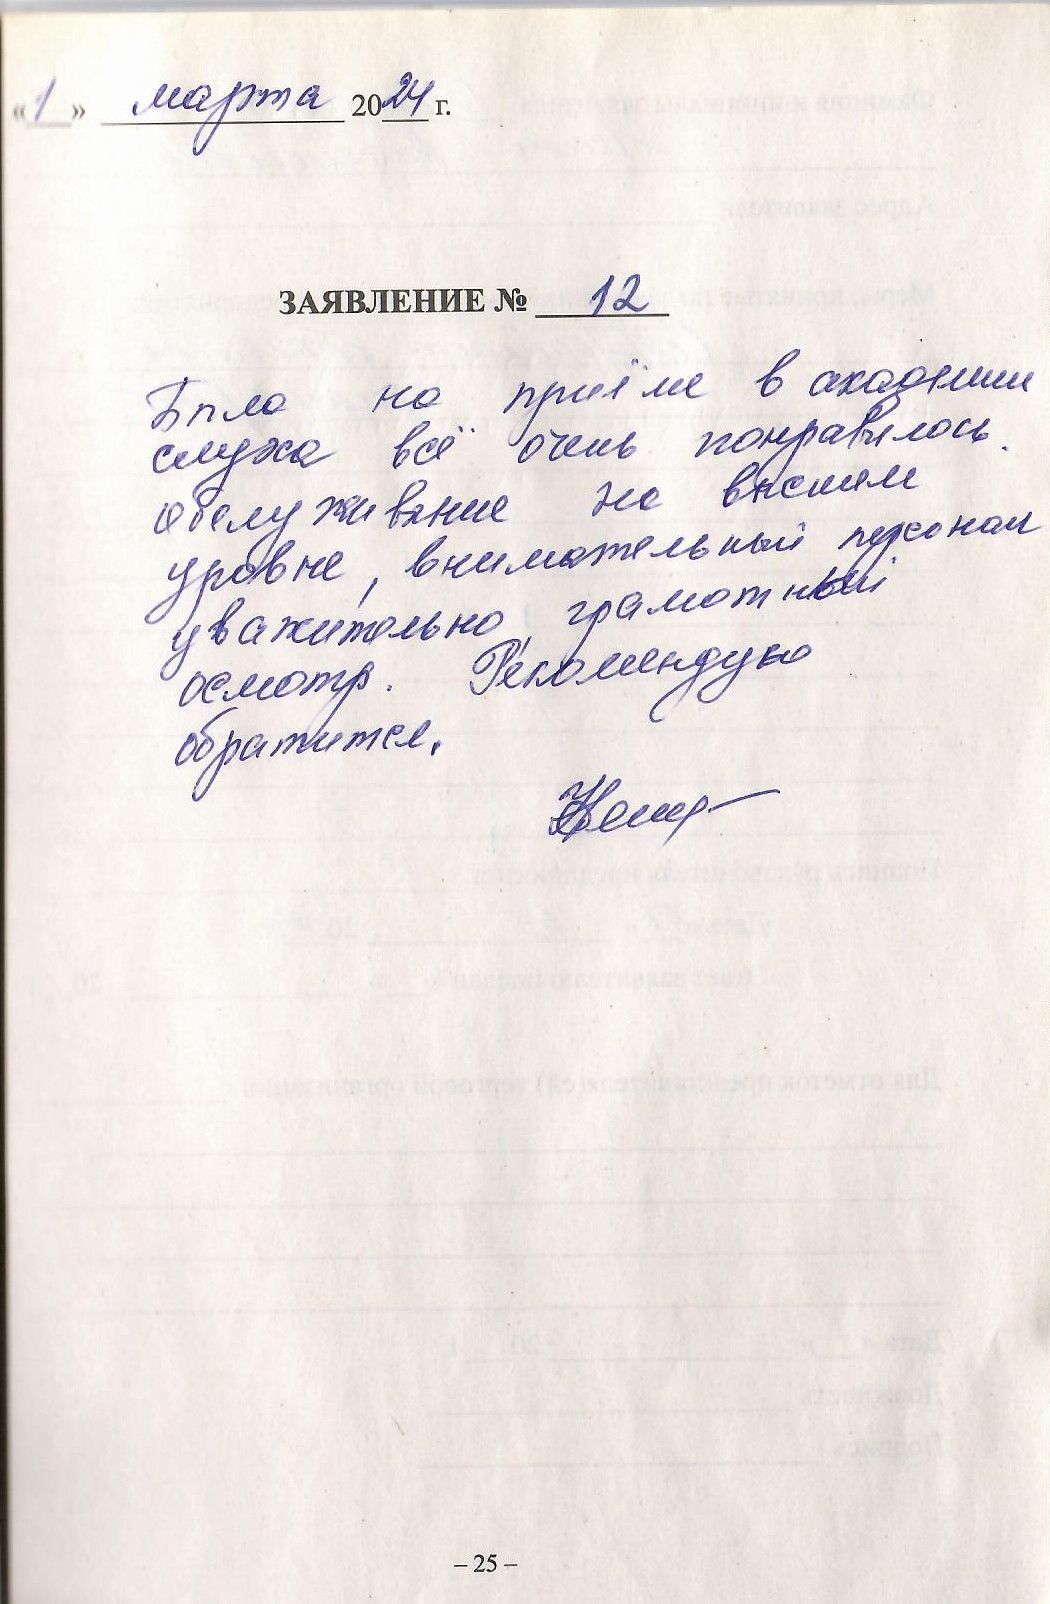 «1» марта 2024 г.
ЗАЯВЛЕНИЕ № 12
Была на приёме в академии
слуха всё очень понравилось.
Обслуживание на высшем
уровне, внимательный персонал
уважительно, грамотный
осмотр. Рекомендую
обратится.
– 25 –